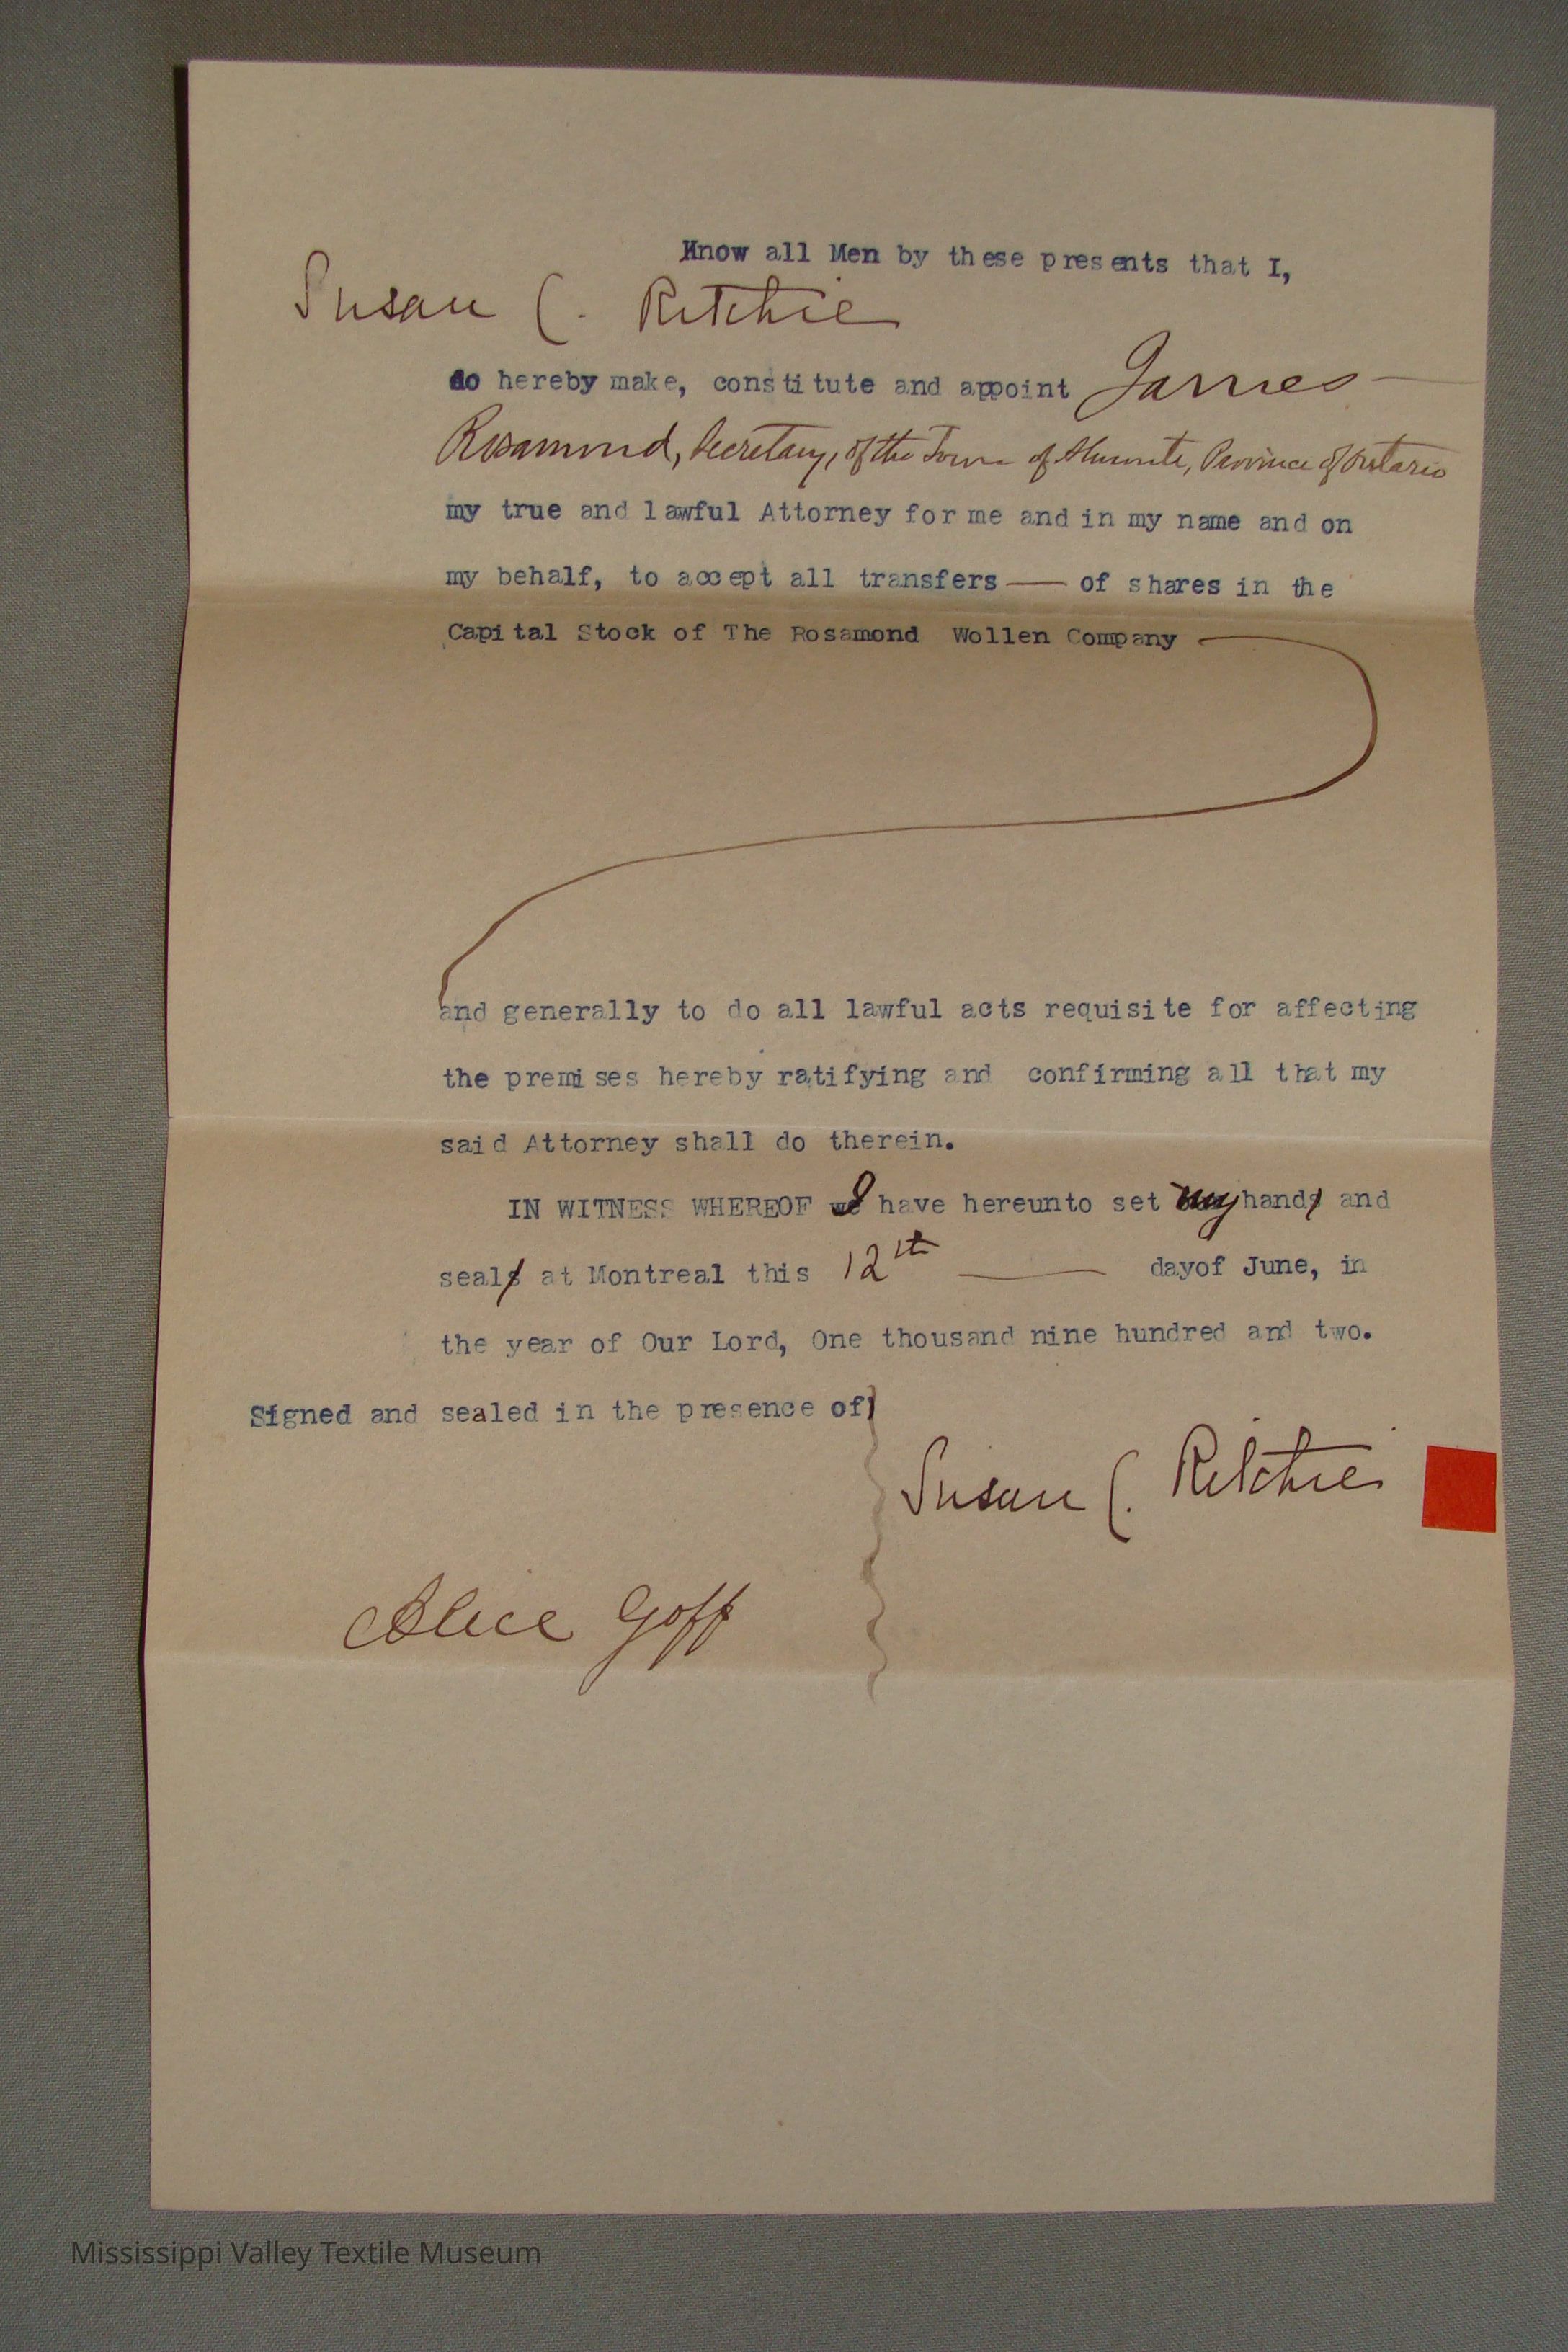 Know all Men by these presents that I,
Susan C. Ritchie
do hereby make, constitute and appoint James
Rosamond, Secretary, of the Town of Almonte, Province of Ontario
my true and lawful Attorney for me and in my name and on
my behalf, to accept all transfers — of shares in the
Capital Stock of The Rosamond Wollen Company
and generally to do all lawful acts requisite for affecting
the premises hereby ratifying and confirming all that my
said Attorney shall do therein.
IN WITNESS WHEREOF I have hereunto set my hand and
seal at Montreal this 12th — dayof June, in
the year of Our Lord, One thousand nine hundred and two.
Signed and sealed in the presence of)
Susan C. Ritchie
Alice Goff
Mississippi Valley Textile Museum